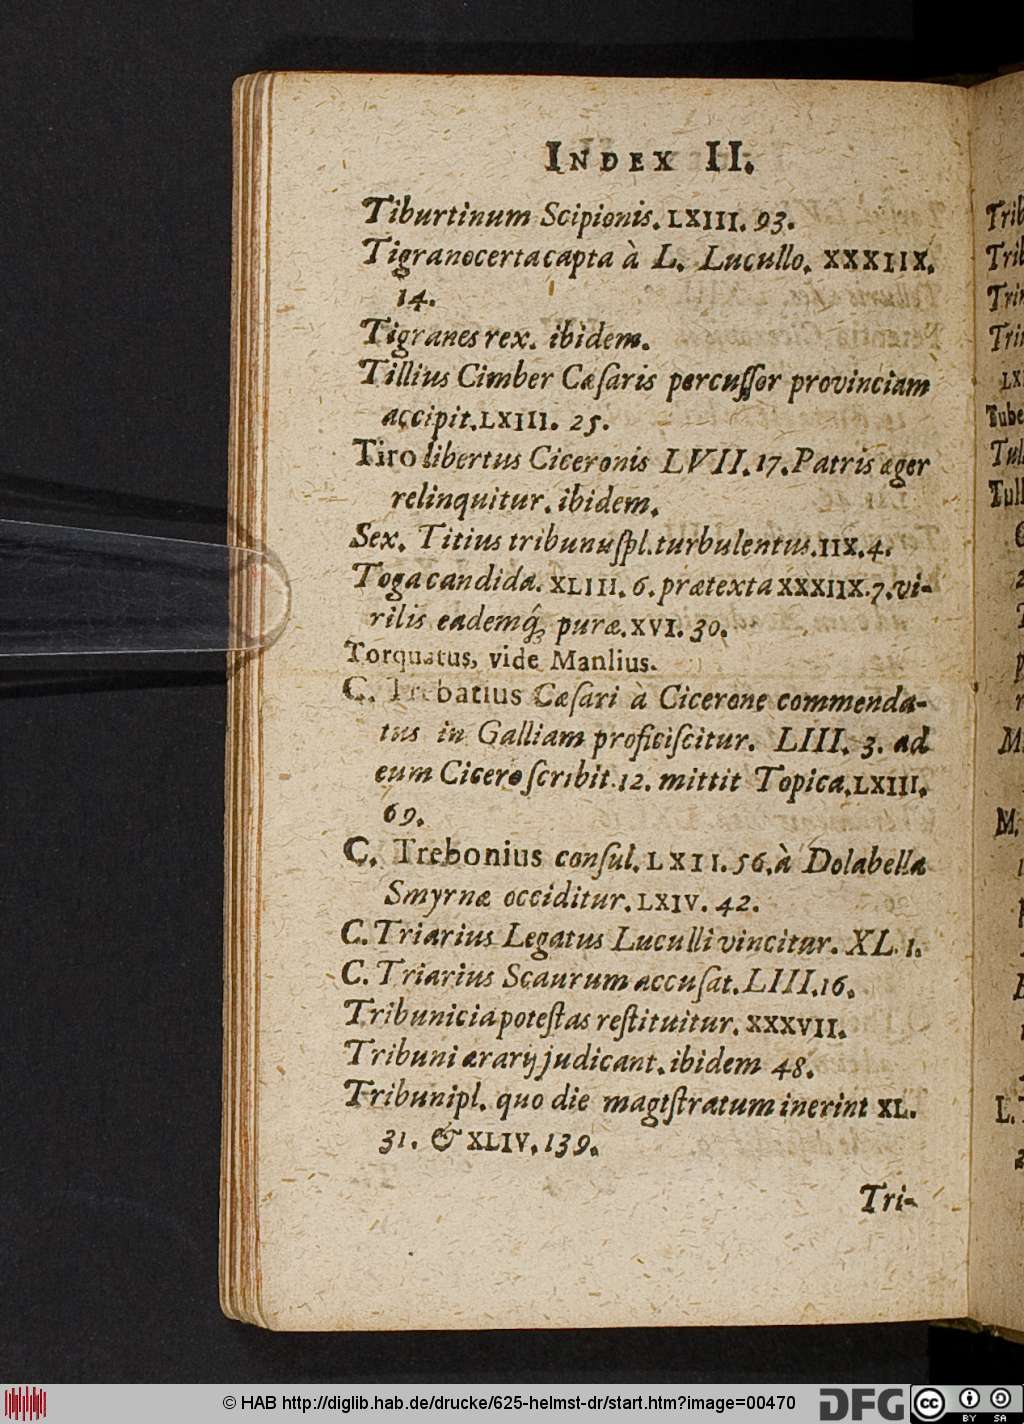 INDEX II.
Tiburtinum Scipionis. LXIII. 93.
Tigranocerta capta à L. Lucullo. XXXIIX.
14.
Tigranes rex. ibidem.
Tillius Cimber Cæſaris percuſſor provinciam
accipit. LXIII. 25.
Tiro libertus Ciceronis LVII. 17. Patris æger
relinquitur. ibidem.
Sex. Titius tribunuſpl. turbulentus. IIX. 4.
Toga candida. XLIII. 6. prætexta XXXIIX. 7. vi-
rilis eademq́; puræ. XVI. 30.
Torquatus, vide Manlius.
C. Trebatius Cæſari à Cicerone commenda-
tus in Galliam proficiſcitur. LIII. 3. ad
eum Cicero ſcribit. 12. mittit Topica. LXIII.
69.
C. Trebonius conſul. LXII. 56. à Dolabella
Smyrnæ occiditur. LXIV. 42.
C. Triarius Legatus Luculli vincitur. XL. 1.
C. Triarius Scaurum accuſat. LIII. 16.
Tribunicia poteſtas reſtituitur. XXXVII.
Tribuni ærarij judicant. ibidem 48.
Tribuni pl. quo die magiſtratum inerint XL.
31. & XLIV. 139.
Tri-
© HAB http://diglib.hab.de/drucke/625-helmst-dr/start.htm?image=00470
DFG
cc BY SA